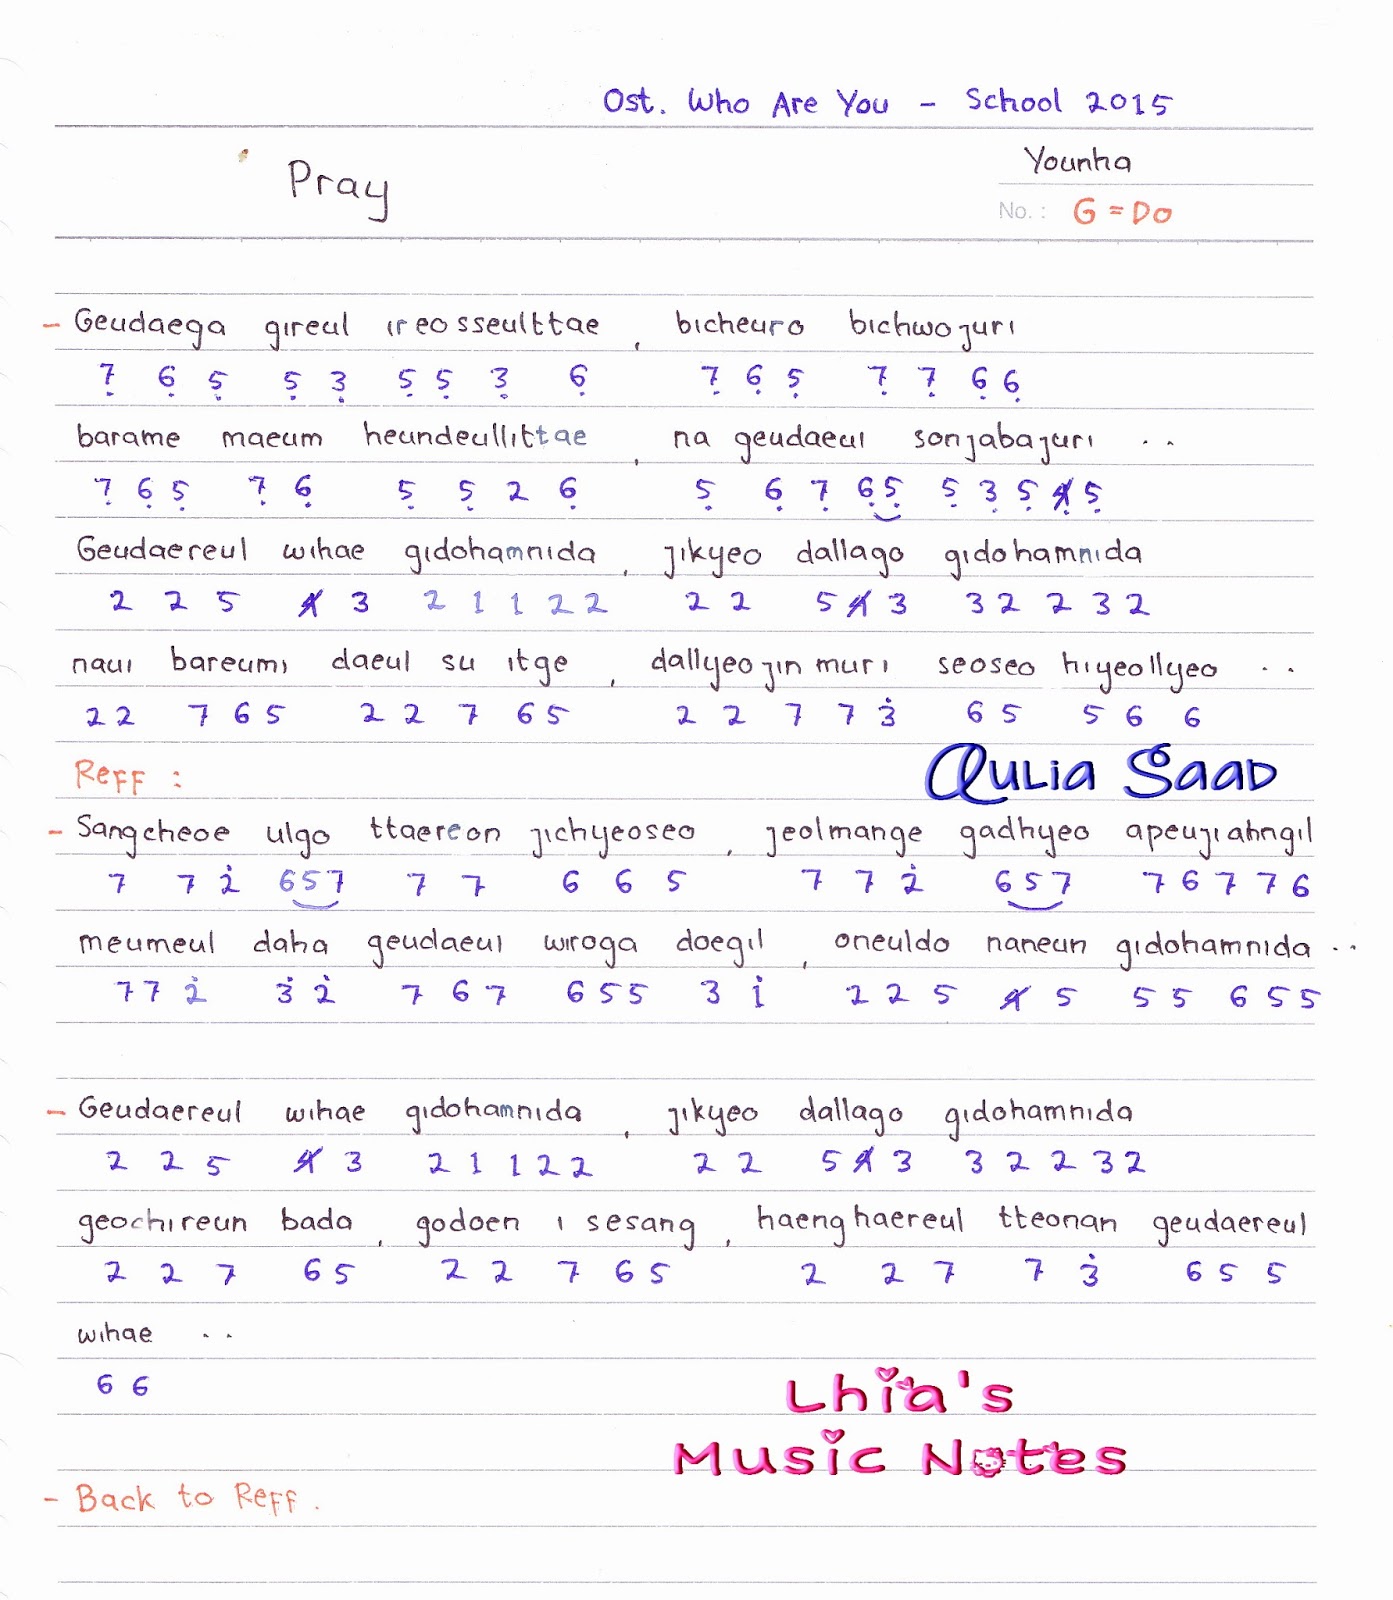 Ost. Who Are You - School 2015
Younha
Pray
No. : G = Do
- Geudaega gireul ireosseulttae , bicheuro bichwojuri
7̣ 6̣ 5̣ 5̣ 3̣ 5̣ 5̣ 3̣ 6̣ 7̣ 6̣ 5̣ 7̣ 7̣ 6̣ 6̣
barame maeum heundeullittae , na geudaeui sonjabajuri ..
7̣ 6̣ 5̣ 7̣ 6̣ 5̣ 5̣ 2 6̣ 5̣ 6̣ 7̣ 6̣ 5̣ 5̣ 3̣ 5̣ 4̸̣ 5̣
Geudaereul wihae gidohamnida , jikyeo dallago gidohamnida
2 2 5 4̸ 3 2 1 1 2 2 2 2 5 4̸ 3 3 2 2 3 2
naui bareumi daeul su itge , dallyeojin muri seoseo hiyeollyeo ..
2 2 7 6 5 2 2 7 6 5 2 2 7 7 3̇ 6 5 5 6 6
Reff :
Aulia Saad
- Sangcheoe ulgo ttaereon jichyeoseo , jeolmange gadhyeo apeujiahngil
7 7 2̇ 6 5 7 7 7 6 6 5 7 7 2̇ 6 5 7 7 6 7 7 6
meumeul daha geudaeui wiroga doegil , oneuldo naneun gidohamnida ..
7 7 2̇ 3̇ 2̇ 7 6 7 6 5 5 3 1̇ 2 2 5 4̸ 5 5 5 6 5 5
- Geudaereul wihae gidohamnida , jikyeo dallago gidohamnida
2 2 5 4̸ 3 2 1 1 2 2 2 2 5 4̸ 3 3 2 2 3 2
geochireun bada , godoen i sesang , haenghaereul tteonan geudaereul
2 2 7 6 5 2 2 7 6 5 2 2 7 7 3̇ 6 5 5
wihae ..
6 6
Lhia's
Music Notes
- Back to Reff .